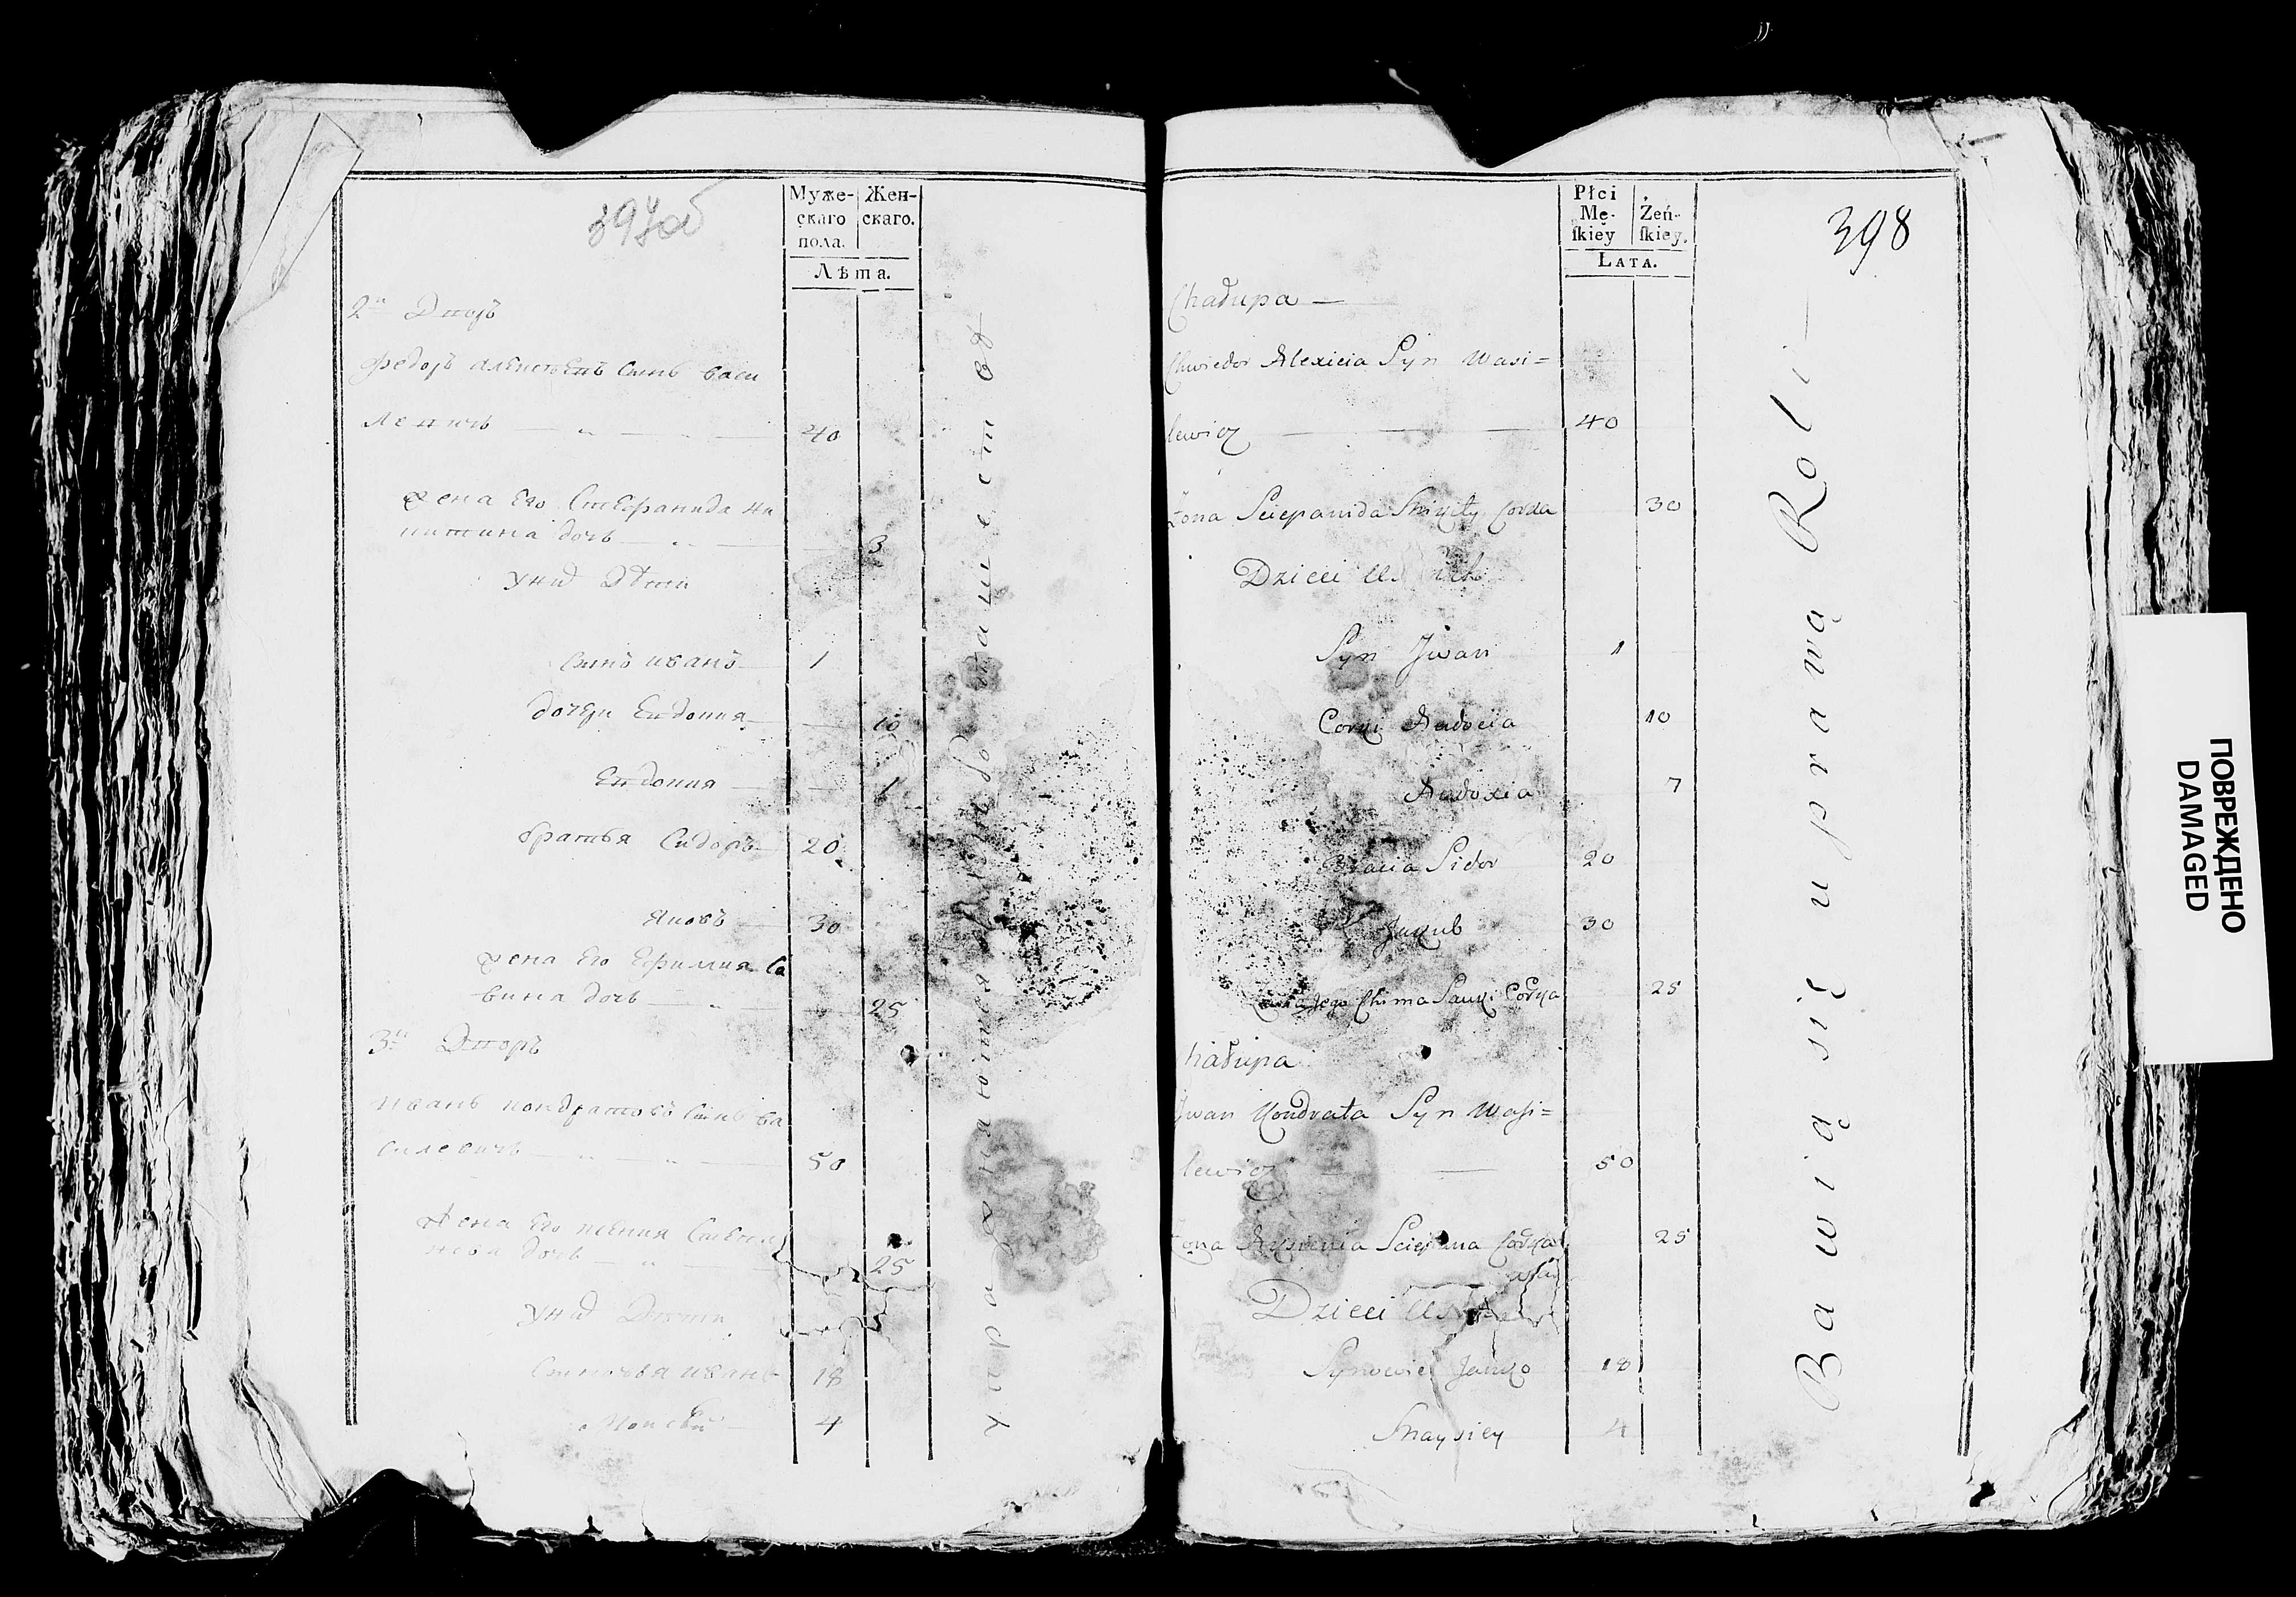 397об
Муже-
скаго
пола.
Жен-
скаго.
Лѣта.
2й Дворъ
Федоръ Алексѣевъ Сынъ Васи
левичь 40
жена Его Степанида Ни
китина дочь 3
У нихъ Дѣти
Сынъ Иванъ 1
дочери Евдокия 10
Евдокия
братья Сидоръ 20
Яковъ 30
жена Его Ефимия Са
вина дочь 25
3й Дворъ
Иванъ Кондратовъ Сынъ Ва
силевичь 50
жена Его Ксения Степа
нова дочь 25
У нихъ Дѣти
Сыновья Иванъ 18
Моисей 4
упражняются хлебопашеством
398
Płci
Mę-
ſkiey
Żeń-
ſkiey.
Lata.
Chałupa
Chwiedor Alexieia Syn Wasi=
lewicz 40
Żona Sciepanida Mikity Corka 30
Dzieci U nich
Syn Jwan 1
Corki Audocia 10
Audoxia 7
Bracia Sidor 20
Jakub 30
Żona Jego Chima Sauki Corka 25
Chałupa
Jwan Kondrata Syn Wasi=
lewicz 50
Żona Sciepana Corka 25
Dzieci U
Synowie Janko 18
Maysiey 4
Bawią się uprawą Roli
ПОВРЕЖДЕНО
DAMAGED